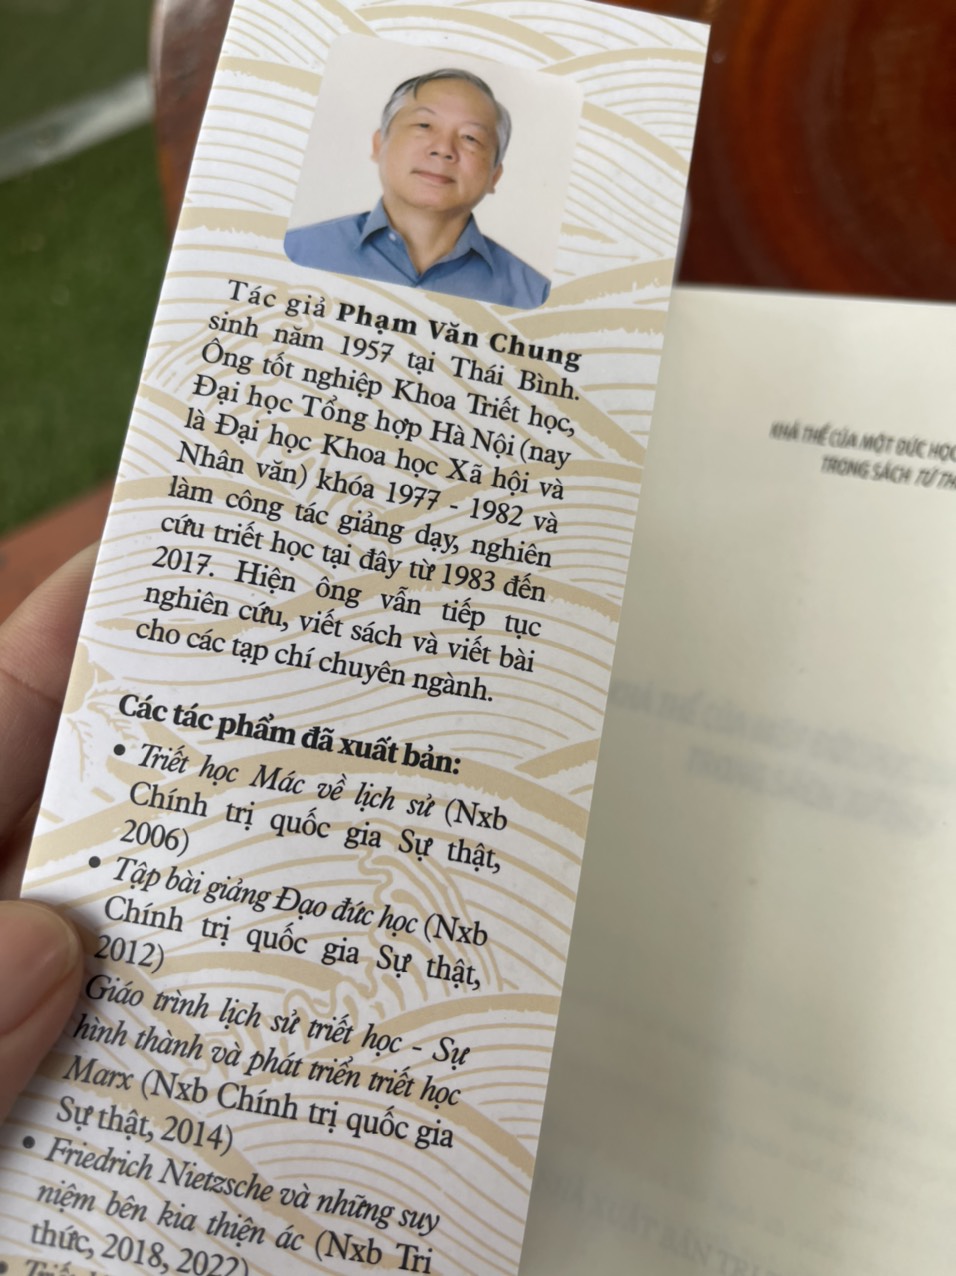 Tác giả Phạm Văn Chung
sinh năm 1957 tại Thái Bình.
Ông tốt nghiệp Khoa Triết học,
Đại học Tổng hợp Hà Nội (nay
là Đại học Khoa học Xã hội và
Nhân văn) khóa 1977 - 1982 và
làm công tác giảng dạy, nghiên
cứu triết học tại đây từ 1983 đến
2017. Hiện ông vẫn tiếp tục
nghiên cứu, viết sách và viết bài
cho các tạp chí chuyên ngành.
Các tác phẩm đã xuất bản:
• Triết học Mác về lịch sử (Nxb
Chính trị quốc gia Sự thật,
2006)
• Tập bài giảng Đạo đức học (Nxb
Chính trị quốc gia Sự thật,
2012)
Giáo trình lịch sử triết học - Sự
hình thành và phát triển triết học
Marx (Nxb Chính trị quốc gia
Sự thật, 2014)
• Friedrich Nietzsche và những suy
niệm bên kia thiện ác (Nxb Tri
thức, 2018, 2022)
KHẢ THỂ CỦA MỘT ĐỨC HỌC
TRONG SÁCH TỨ TH